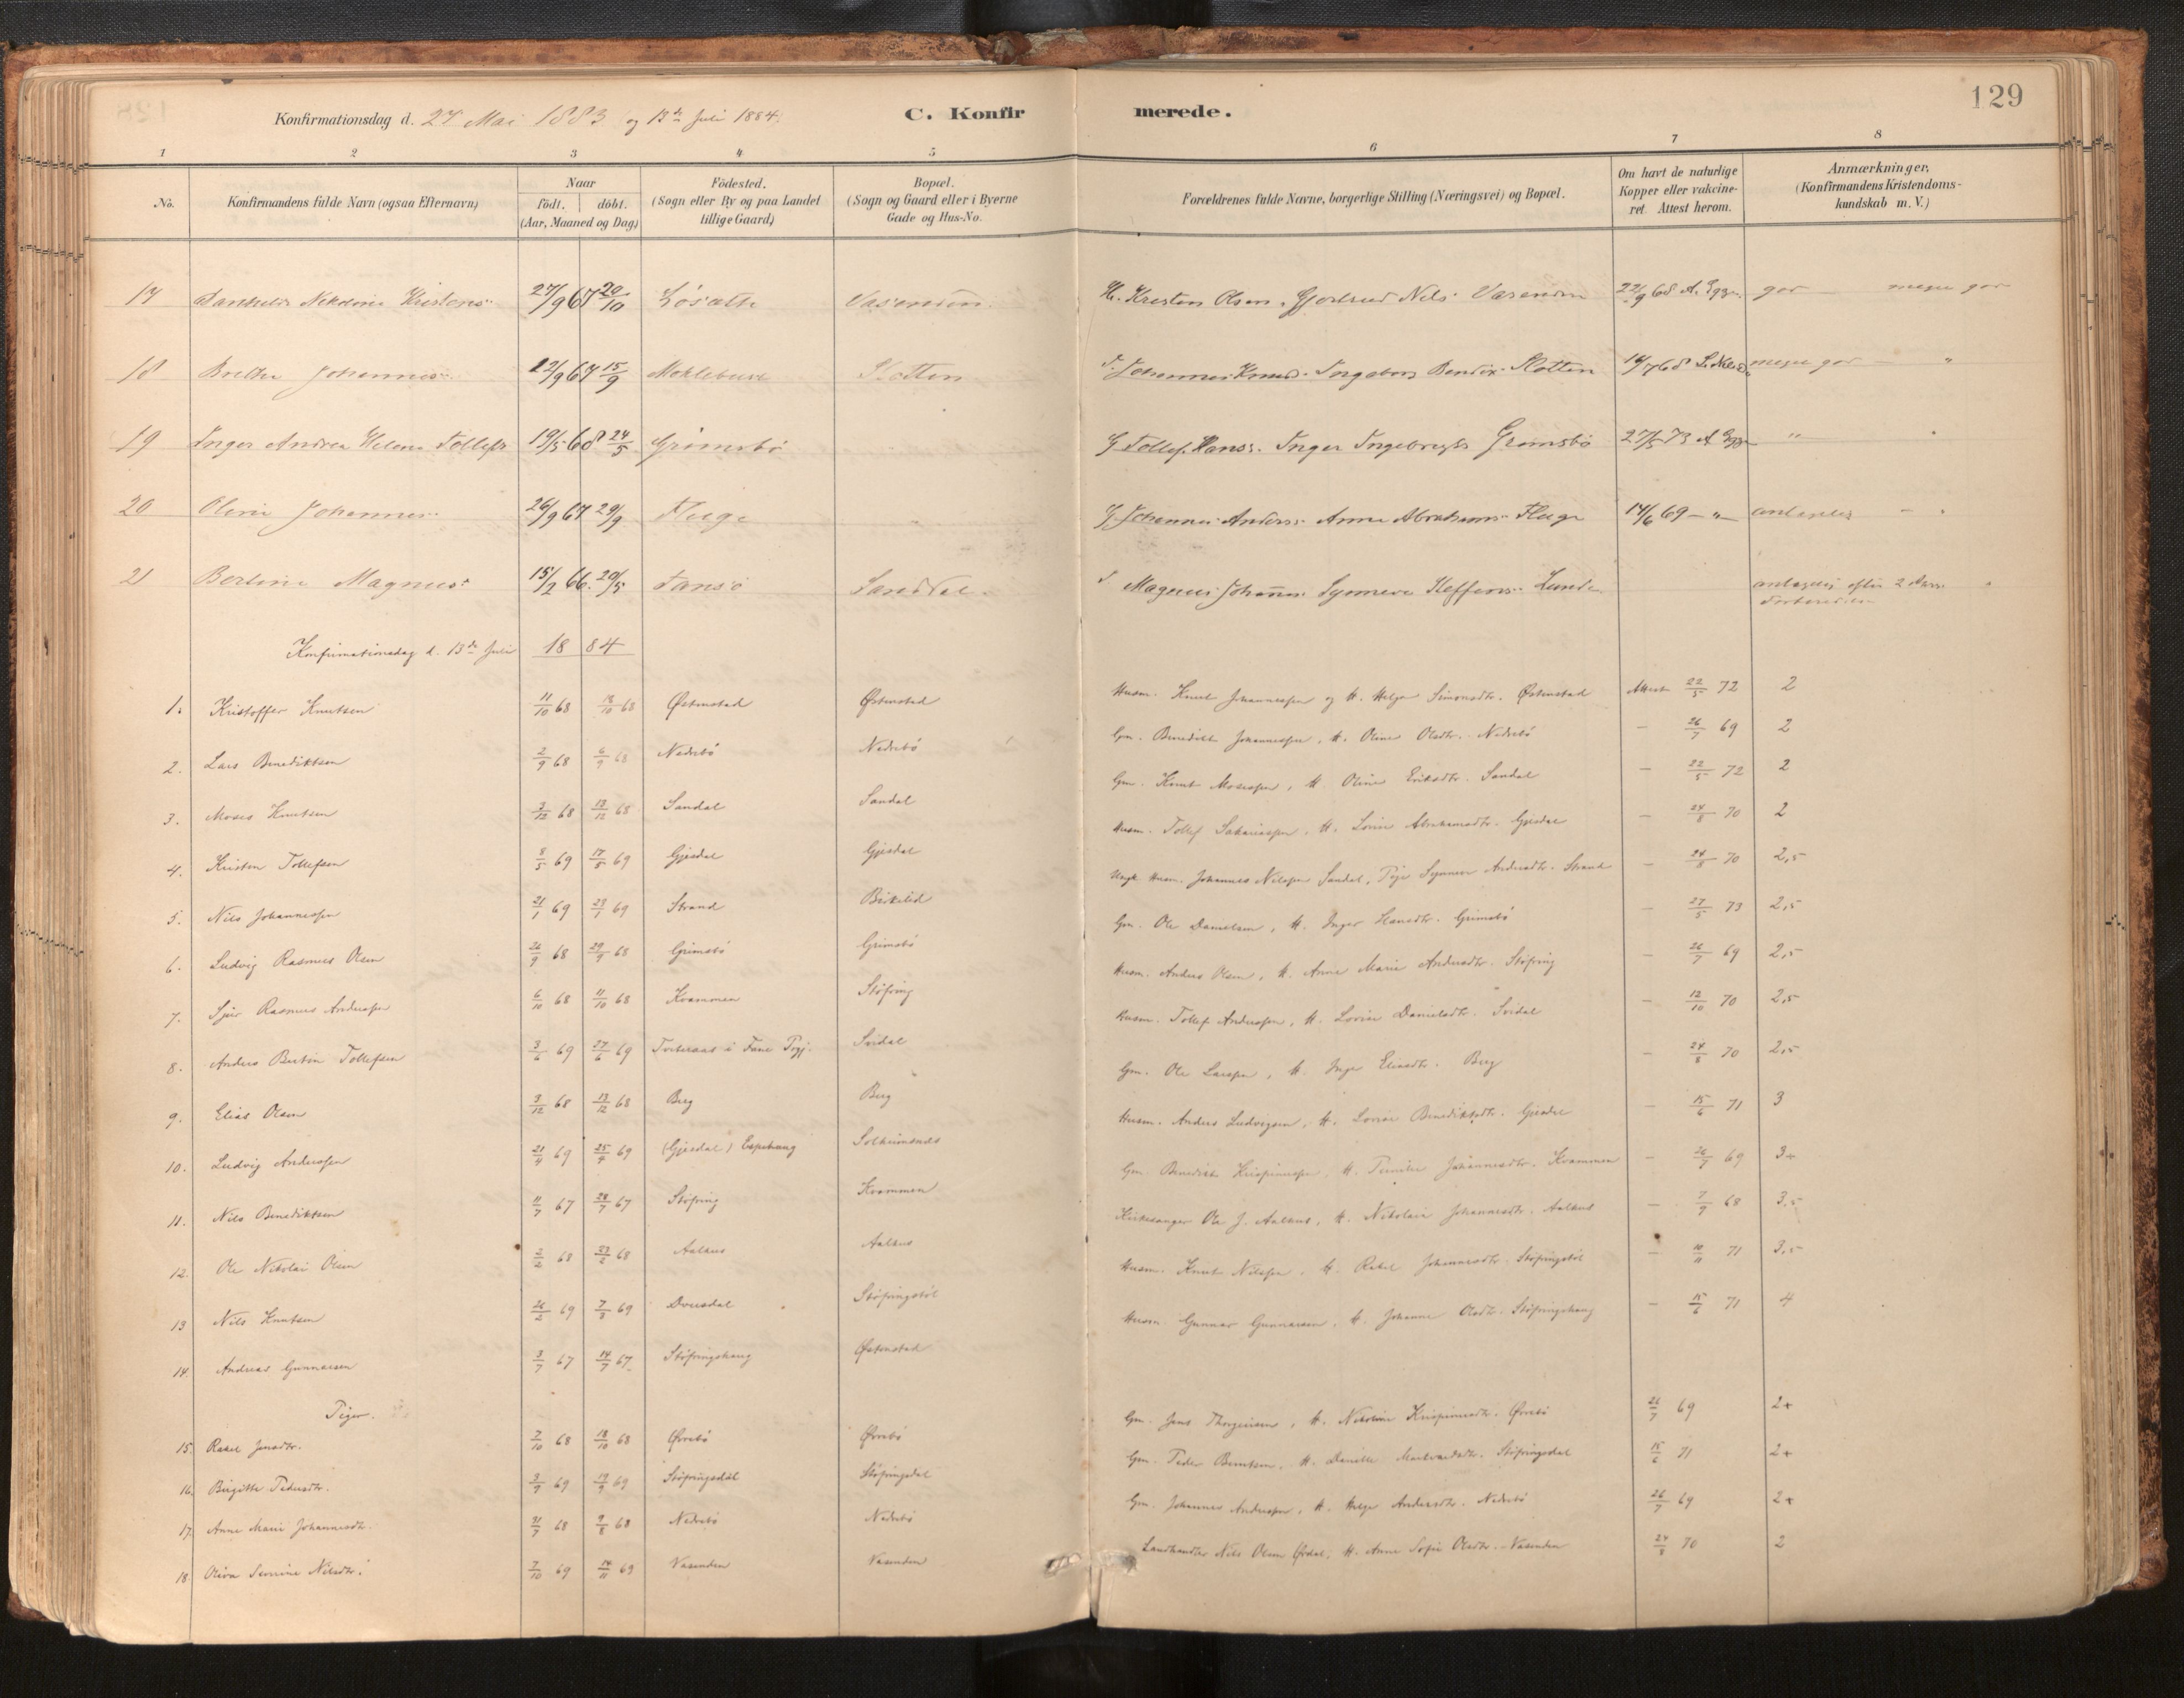 129
Konfirmationsdag d. 27 Mai 1883 og 13de Juli 1884.
C. Konfirmerede.
1 2 3 4 5 6 7 8
No. Konfirmandens fulde Navn (ogsaa Efternavn) Naar födt. döbt. (Aar, Maaned og Dag) Födested. (Sogn eller By og paa Landet tillige Gaard) Bopæl. (Sogn og Gaard eller i Byerne Gade og Hus-No. Forældrenes fulde Navne, borgerlige Stilling (Næringsvei) og Bopæl. Om havt de naturlige Kopper eller vakcineret. Attest herom. Anmærkninger, (Konfirmandens Kristendomskundskab m. V.)
17 Nikoline Kristens: 27/9 67 20/10 Vasenden. Kristen Olsen. Nils: Vasenden 22/9 68 god meget god
18 Brithe Johannes: 22/9 67 15/9 Slotten Johannes Knuds: Ingeborg Bendix: Slotten 14/7 68 meget god "
19 Inger Andrea Helene Tollefs 19/5 68 24/5 Grimsbö G Tollef Hans: Inger Ingebrigts Grimsbö 27/5 73 " "
20 Oline Johannes: 26/9 67 29/9 Fluge " G. Johannes Anders: Anne Abrahams: Fluge 14/6 69 - " -
21 Berline Magnus: 15/2 66. 20/5 Sanddal. Magnus Johann: Synneve Steffens: Lunde. antagelig efter 2 Aars Forberedelse
Konfirmationsdag d. 13de Juli 1884
1. Kristoffer Knutsen 11/10 68 18/10 68 Østenstad Østenstad Husm. Knut Johannessen og H. Helga Simonsdtr. Østenstad Attest 22/5 72 2
2. Lars Benediktsen 2/9 68 6/9 68 Nedrebö Nedrebö Gm. Benedikt Johannessen, H. Oline Olsdtr. Nedrebö - 26/7 69 2
3. Moses Knutsen 3/12 68 13/12 68 Sandal Sandal Gm. Knut Mosessen, H. Oline Eriksdtr. Sandal - 22/5 72 2
4. Kristen Tollefsen 8/5 69 17/5 69 Gjesdal Gjesdal Husm. Tollef Sakariassen, H. Lovise Abrahamsdtr. Gjesdal - 24/8 70 2
5. Nils Johannessen 21/1 69 23/1 69 Strand Birkelid Ungk. Husm. Johannes Nilssen Sandal, Pige Synneve Andersdtr. Strand - 24/8 70 2,5
6. Ludvig Rasmus Olsen 26/9 68 29/9 68 Grimsbö Grimsbö Gm. Ole Danielsen, H. Inger Hansdtr. Grimsbö - 27/5 73 2,5
7. Sjur Rasmus Anderssen 6/10 68 11/10 68 Kvammen Støfring Husm. Anders Olsen, H. Anne Marie Andersdtr. Støfring - 26/7 69 2,5
8. Anders Bertin Tollefsen 3/6 69 27/6 69 Tveteraas i Fane Prgj. Svidal Husm. Tollef Anderssen, H. Lovise Danielsdtr. Svidal - 12/10 70 2,5
9. Elias Olsen 3/12 68 13/12 68 Berg Berg Gm. Ole Larssen, H. Inger Eliasdtr. Berg - 24/8 70 2,5
10. Ludvig Anderssen 21/4 69 25/4 69 (Gjesdal) Espehaug Solheimsnes Husm. Anders Ludvigsen, H. Lovise Benediktsdtr. Gjesdal - 15/6 71 3
11. Nils Benediktsen 11/7 67 28/7 67 Støfring Kvammen Gm. Benedikt Krispinussen, H. Pernille Johannesdtr. Kvammen - 26/7 69 3+
12. Ole Nikolai Olsen 2/2 68 23/2 68 Aalhus Aalhus Kirkesanger Ole J. Aalhus, H. Nikolaia Johannesdtr. Aalhus - 7/9 68 3,5
13 Nils Knutsen 26/2 69 7/3 69 Dvergsdal Støfringstøl Husm. Knut Nilssen, H. Rakel Johannesdtr. Støfringstøl - 10/11 71 3,5
14. Andreas Gunnarsen 3/7 67 14/7 67 Støfringshaug Østenstad Husm. Gunnar Gunnarsen, H. Johanne Olsdtr. Støfringshaug - 15/6 71 4
Piger.
15. Rakel Jensdtr. 7/10 68 18/10 68 Øvrebö Øvrebö Gm. Jens Thorgeirsen, H. Nikoline Krispinusdtr. Øvrebö 26/7 69 2+
16. Birgitte Pedersdtr. 3/9 69 19/9 69 Støfringsdal Støfringsdal Gm. Peder Berntsen, H. Danielle Markvardsdtr. Støfringsdal 15/6 71 2+
17. Anne Marie Johannesdtr. 31/7 68 9/8 68 Nedrebö Nedrebö Gm. Johannes Anderssen, H. Helga Andersdtr. Nedrebö 26/7 69 2+
18. Oliva Severine Nilsdtr. 7/10 69 14/11 69 Vasenden Vasenden Landhandler Nils Olsen Årdal, H. Anne Sofie Olsdtr. Vasenden 24/8 70 2